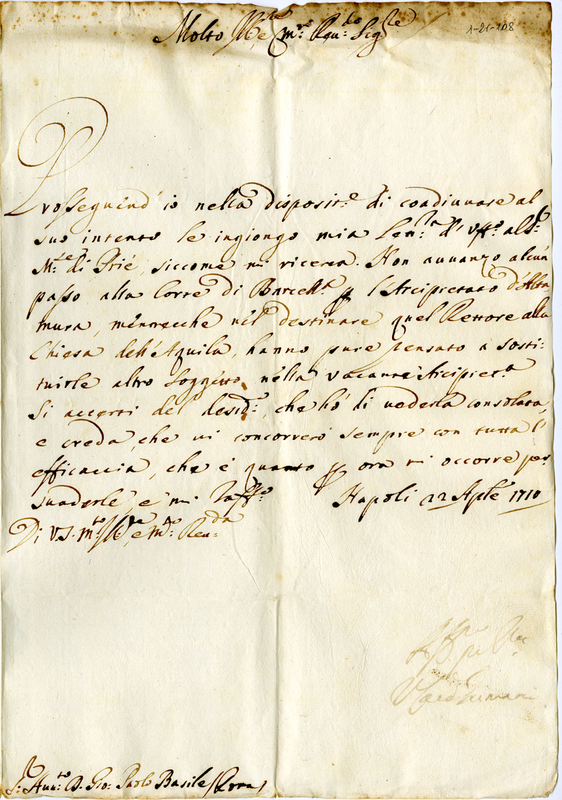 Molto Ill.re e m.to Rev.do Sig.re
1-21-108
Prosseguind' io nella disposit.e di coadiuuare al
suo intento le ingiongo mia Len.ra d' uff.o al S.r
M.se di Prié, siccome mi ricerca. Non auuanzo alcun
passo alla Corte di Barcell.a p l'Arcipretato d'Alta
mura, mentreche nel destinare quel Rettore alla
Chiesa dell'Aquila, hanno pure pensato a sosti-
tuirle altro soggetto nella vacante Arcipret.a
Si accerti del desid.o, che hò di uederla consolata,
e creda, che ui concorrerò sempre con tutta l'
efficaccia, che è quanto p ora mi occorre per
suaderle, e mi raff.o Napoli 22 Aple 1710
Di V.S. m.to Ill.re e m.to Reu.da
S.r Auu.to D. Gio: Paolo Basile